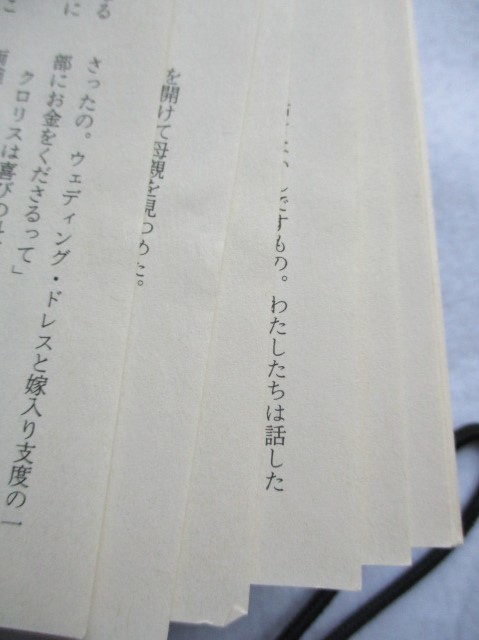 ですもの。わたしたちは話した
を開けて母親を見つめた。
る
に
さったの。ウェディング・ドレスと嫁入り支度の一
部にお金をくださるって」
クロリスは喜びの